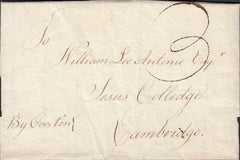 3
To
William Lee Antonie Esqr.
Jesus Colledge
By Caxton
Cambridge.